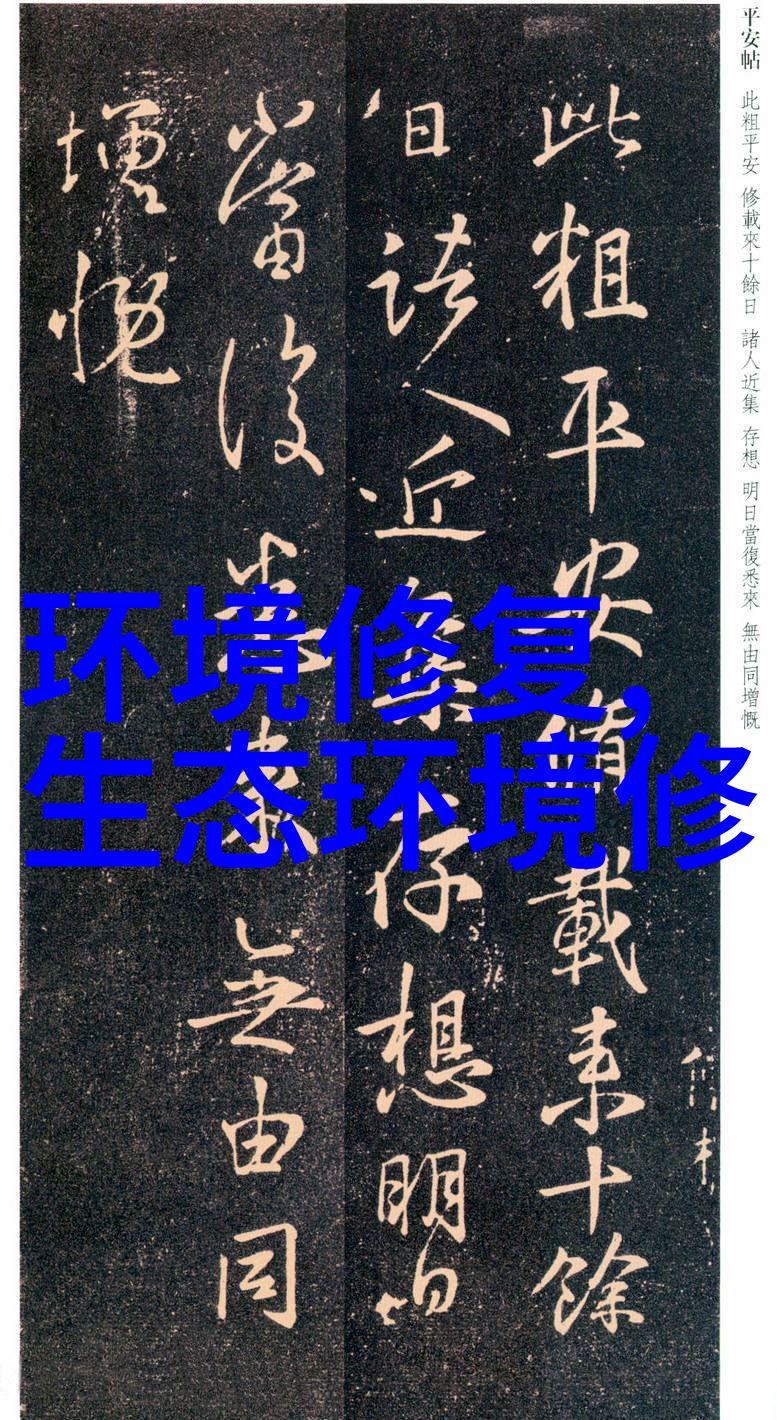 平安帖 此粗平安 修載來十餘日 諸人近集 存想 明日當復悉來 無由同增慨
此粗平安脩載来十餘
日諸人近集存想明日
當復悉来無由同
增慨
环境修复,
生态环境修